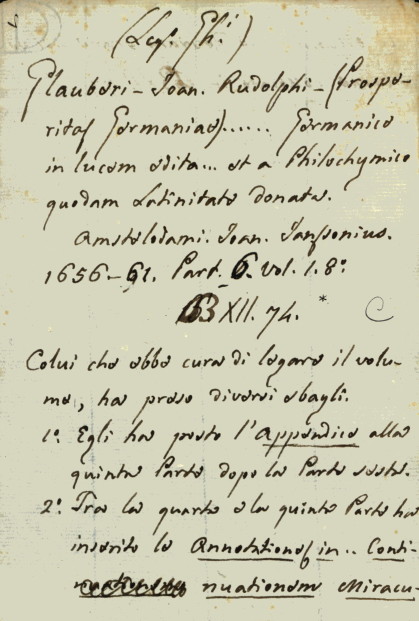 (Leg. Ghi.)
Glauberi - Joan. Rudolphi - (Prospe-
ritas Germaniae)...... Germanice
in lucem edita... et a Philochymico
quodam Latinitate donata.
Amstelodami. Joan. Janssonius.
1656-61. Part. 6. Vol. 1. 8°.
XII. 74. *
C
Colui che ebbe cura di legare il volu-
me, ha preso diversi sbagli.
1°. Egli ha posto l'Appendice alla
quinta Parte dopo la Parte sesta.
2°. Tra la quarta e la quinta Parte ha
inserito le Annotationes in.. Conti-
nuationem Miracu-